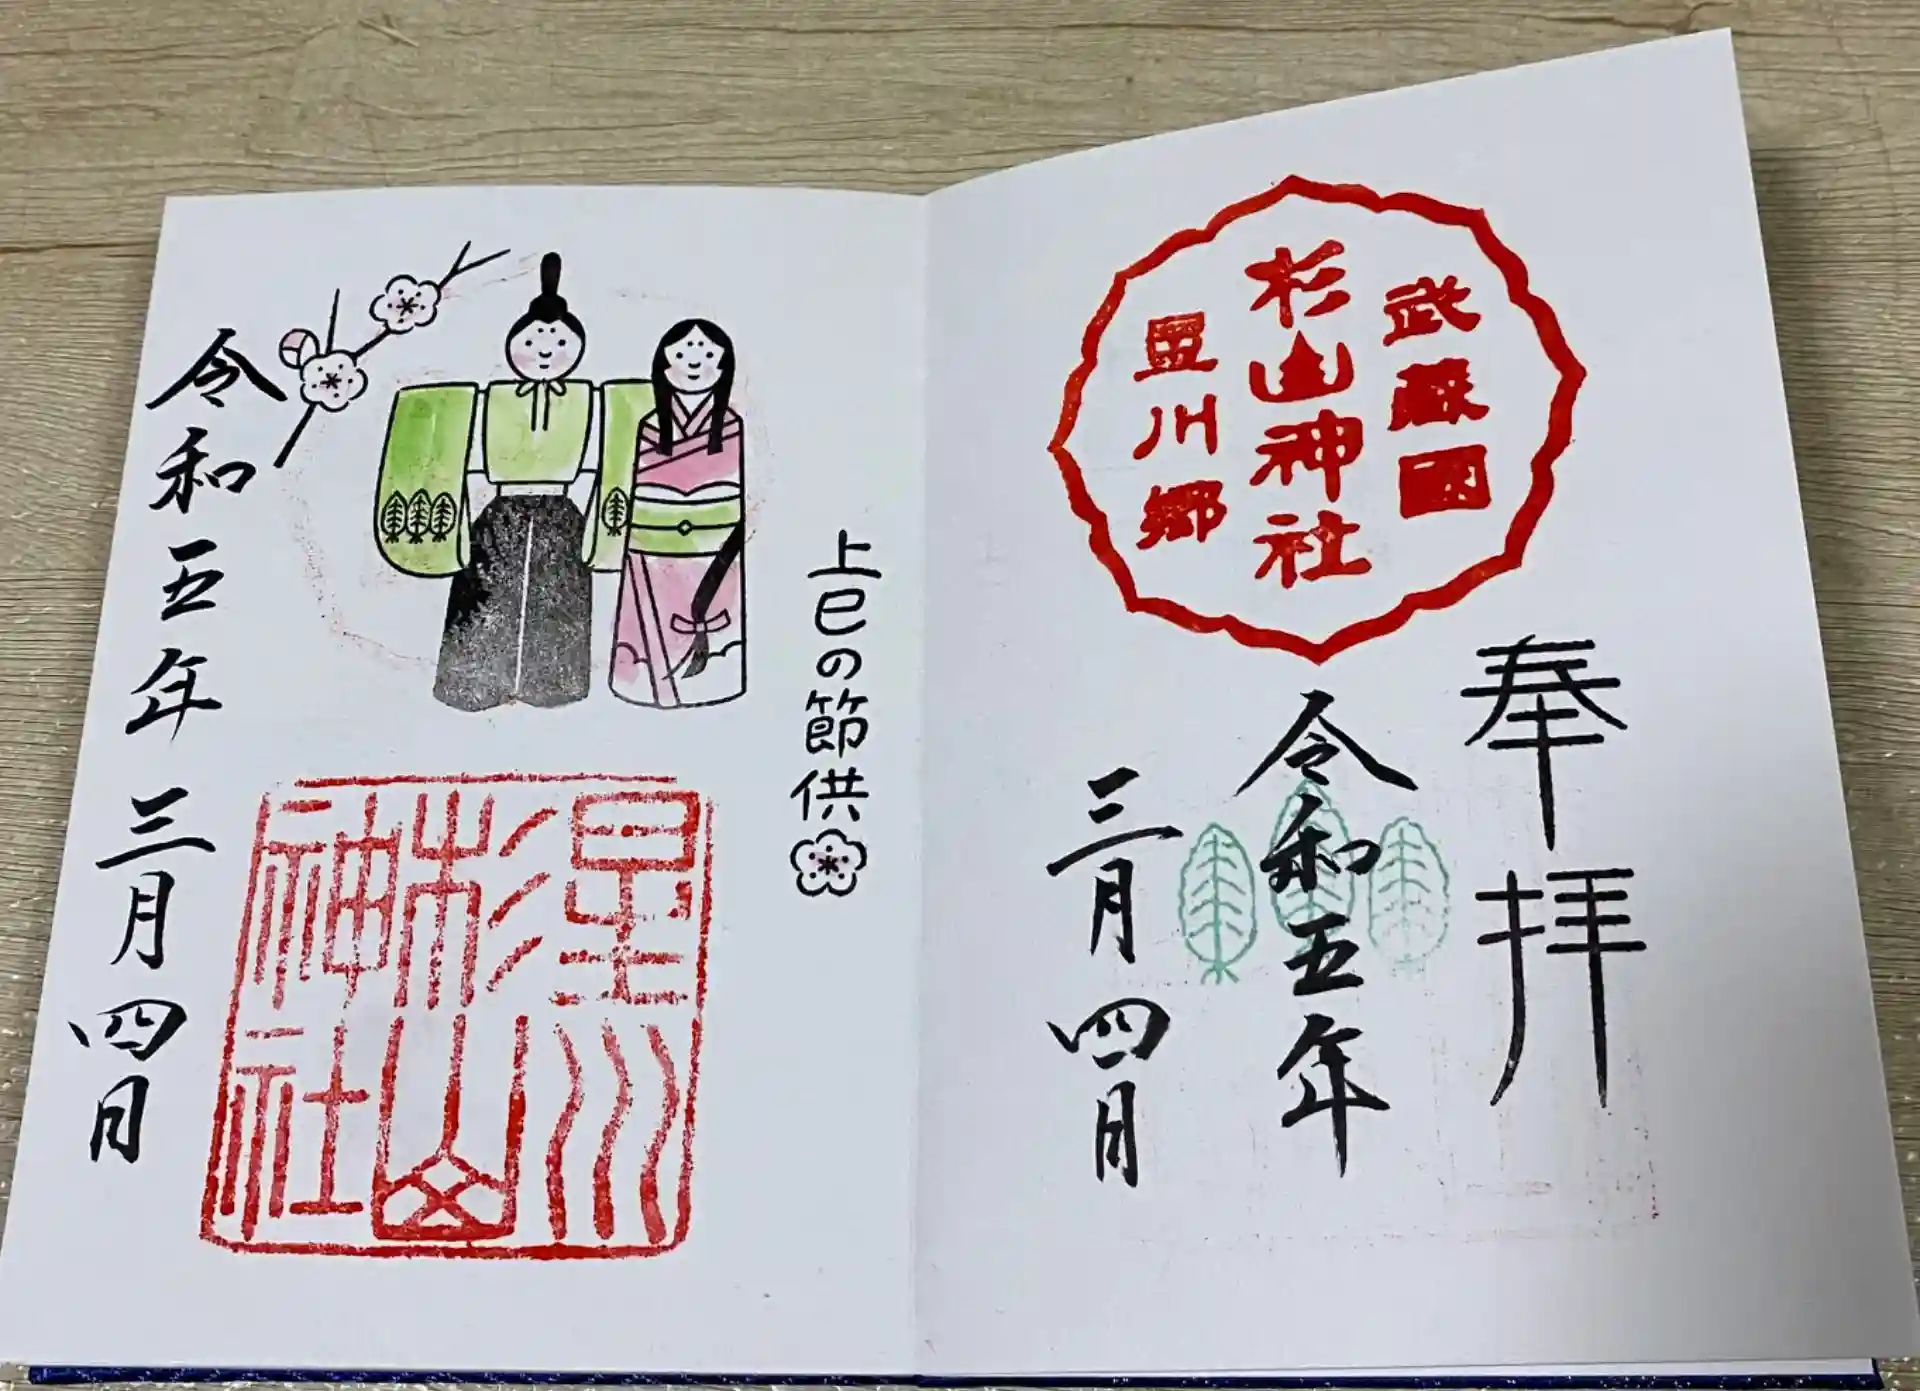 武藏國
杉山神社
星川郷
奉拝
令和五年
三月四日
上巳の節供
星川
杉山
神社
令和五年三月四日